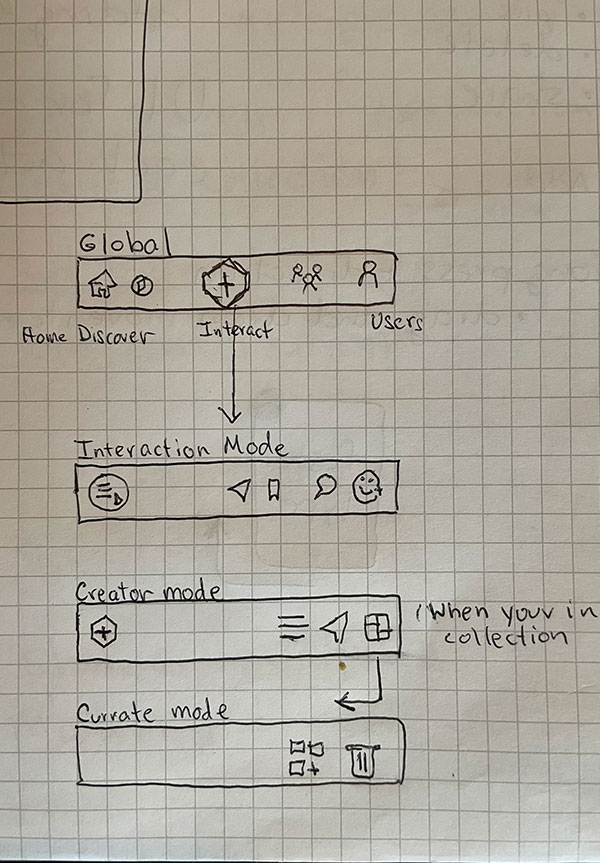 Global
Home Discover Interact Users
Interaction Mode
Creator mode
(When your in
collection
Currate mode